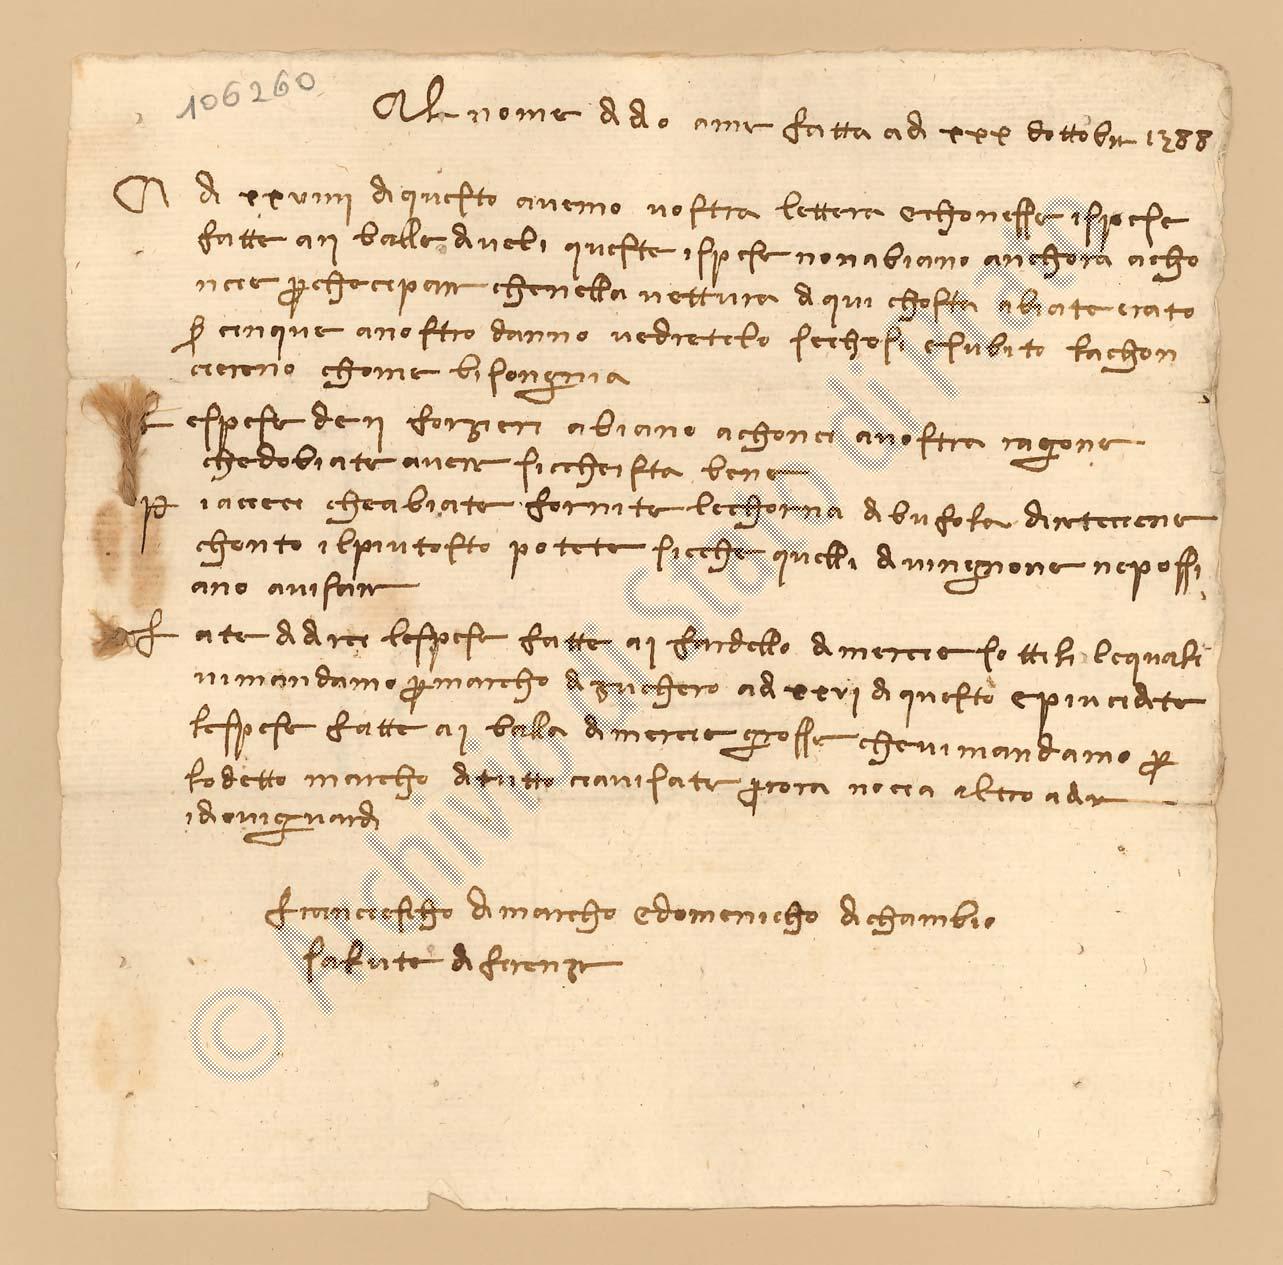 106260
Al nome di dio ame fatta adi xxx dottobre 1388
A di xxviiii di questo avemo vostra lettera echonesse ispese
fatte a ii balle di veli queste ispese nonabiano anchora acho
ncie perche ci pare chenella vettura di qui chosta abiate erato
per cinque anostro danno vedretelo secchosi e subito lachon
ciereno chome bisongnia
L espese de ii forzieri abiano achonci a vostra ragone
chedobiate avere sicchelsta bene
P iacieci cheabiate fornite lechorna di bufola direteciene
chonto ilpiutosto potete sicche quelli di vingnone nepossi
ano avisare
F ate didirci lespese fatte ai fardello di mercie sottili lequali
vimandamo per marcho di zuchero adi xxvi di questo epiucidite
lespese fatte ai balla di mercie grosse chevimandamo per
lodetto marcho ditutto ciavisate perora nocia altro adire
idiovi guardi
Franciescho di marcho edomenicho di chambio
salute di firenze
© Archivio di Stato di Prato